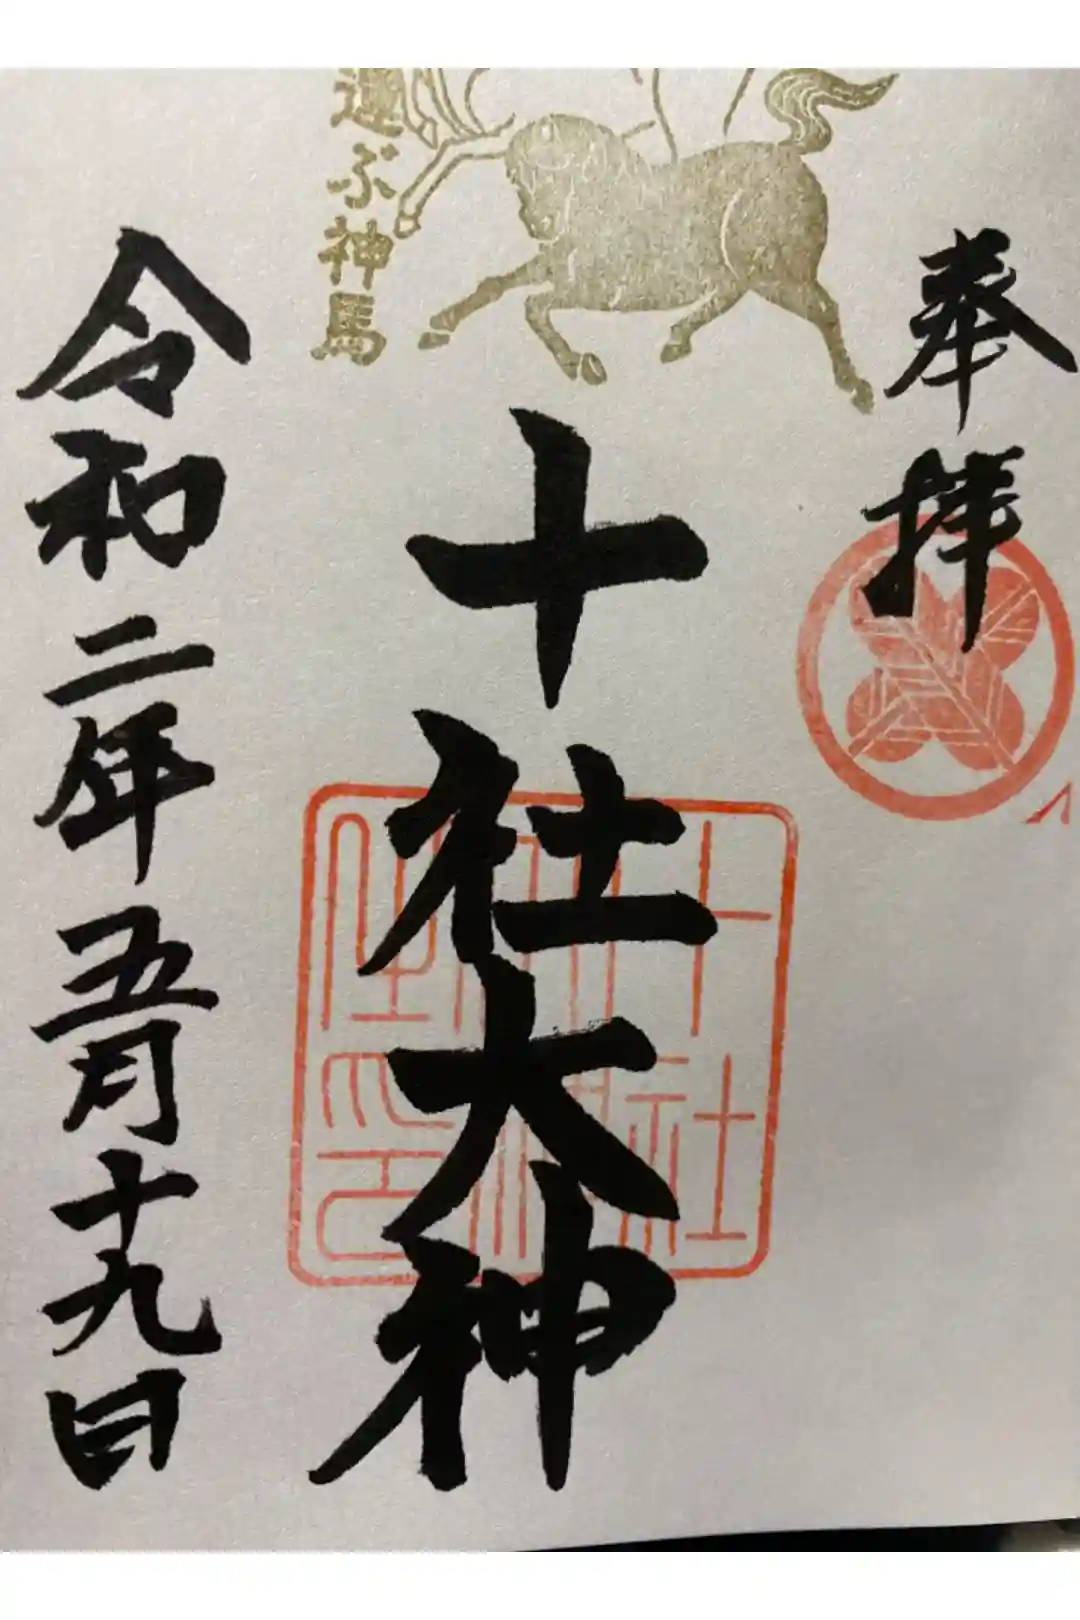 奉拝
十社大神
運ぶ神馬
令和二年五月十九日